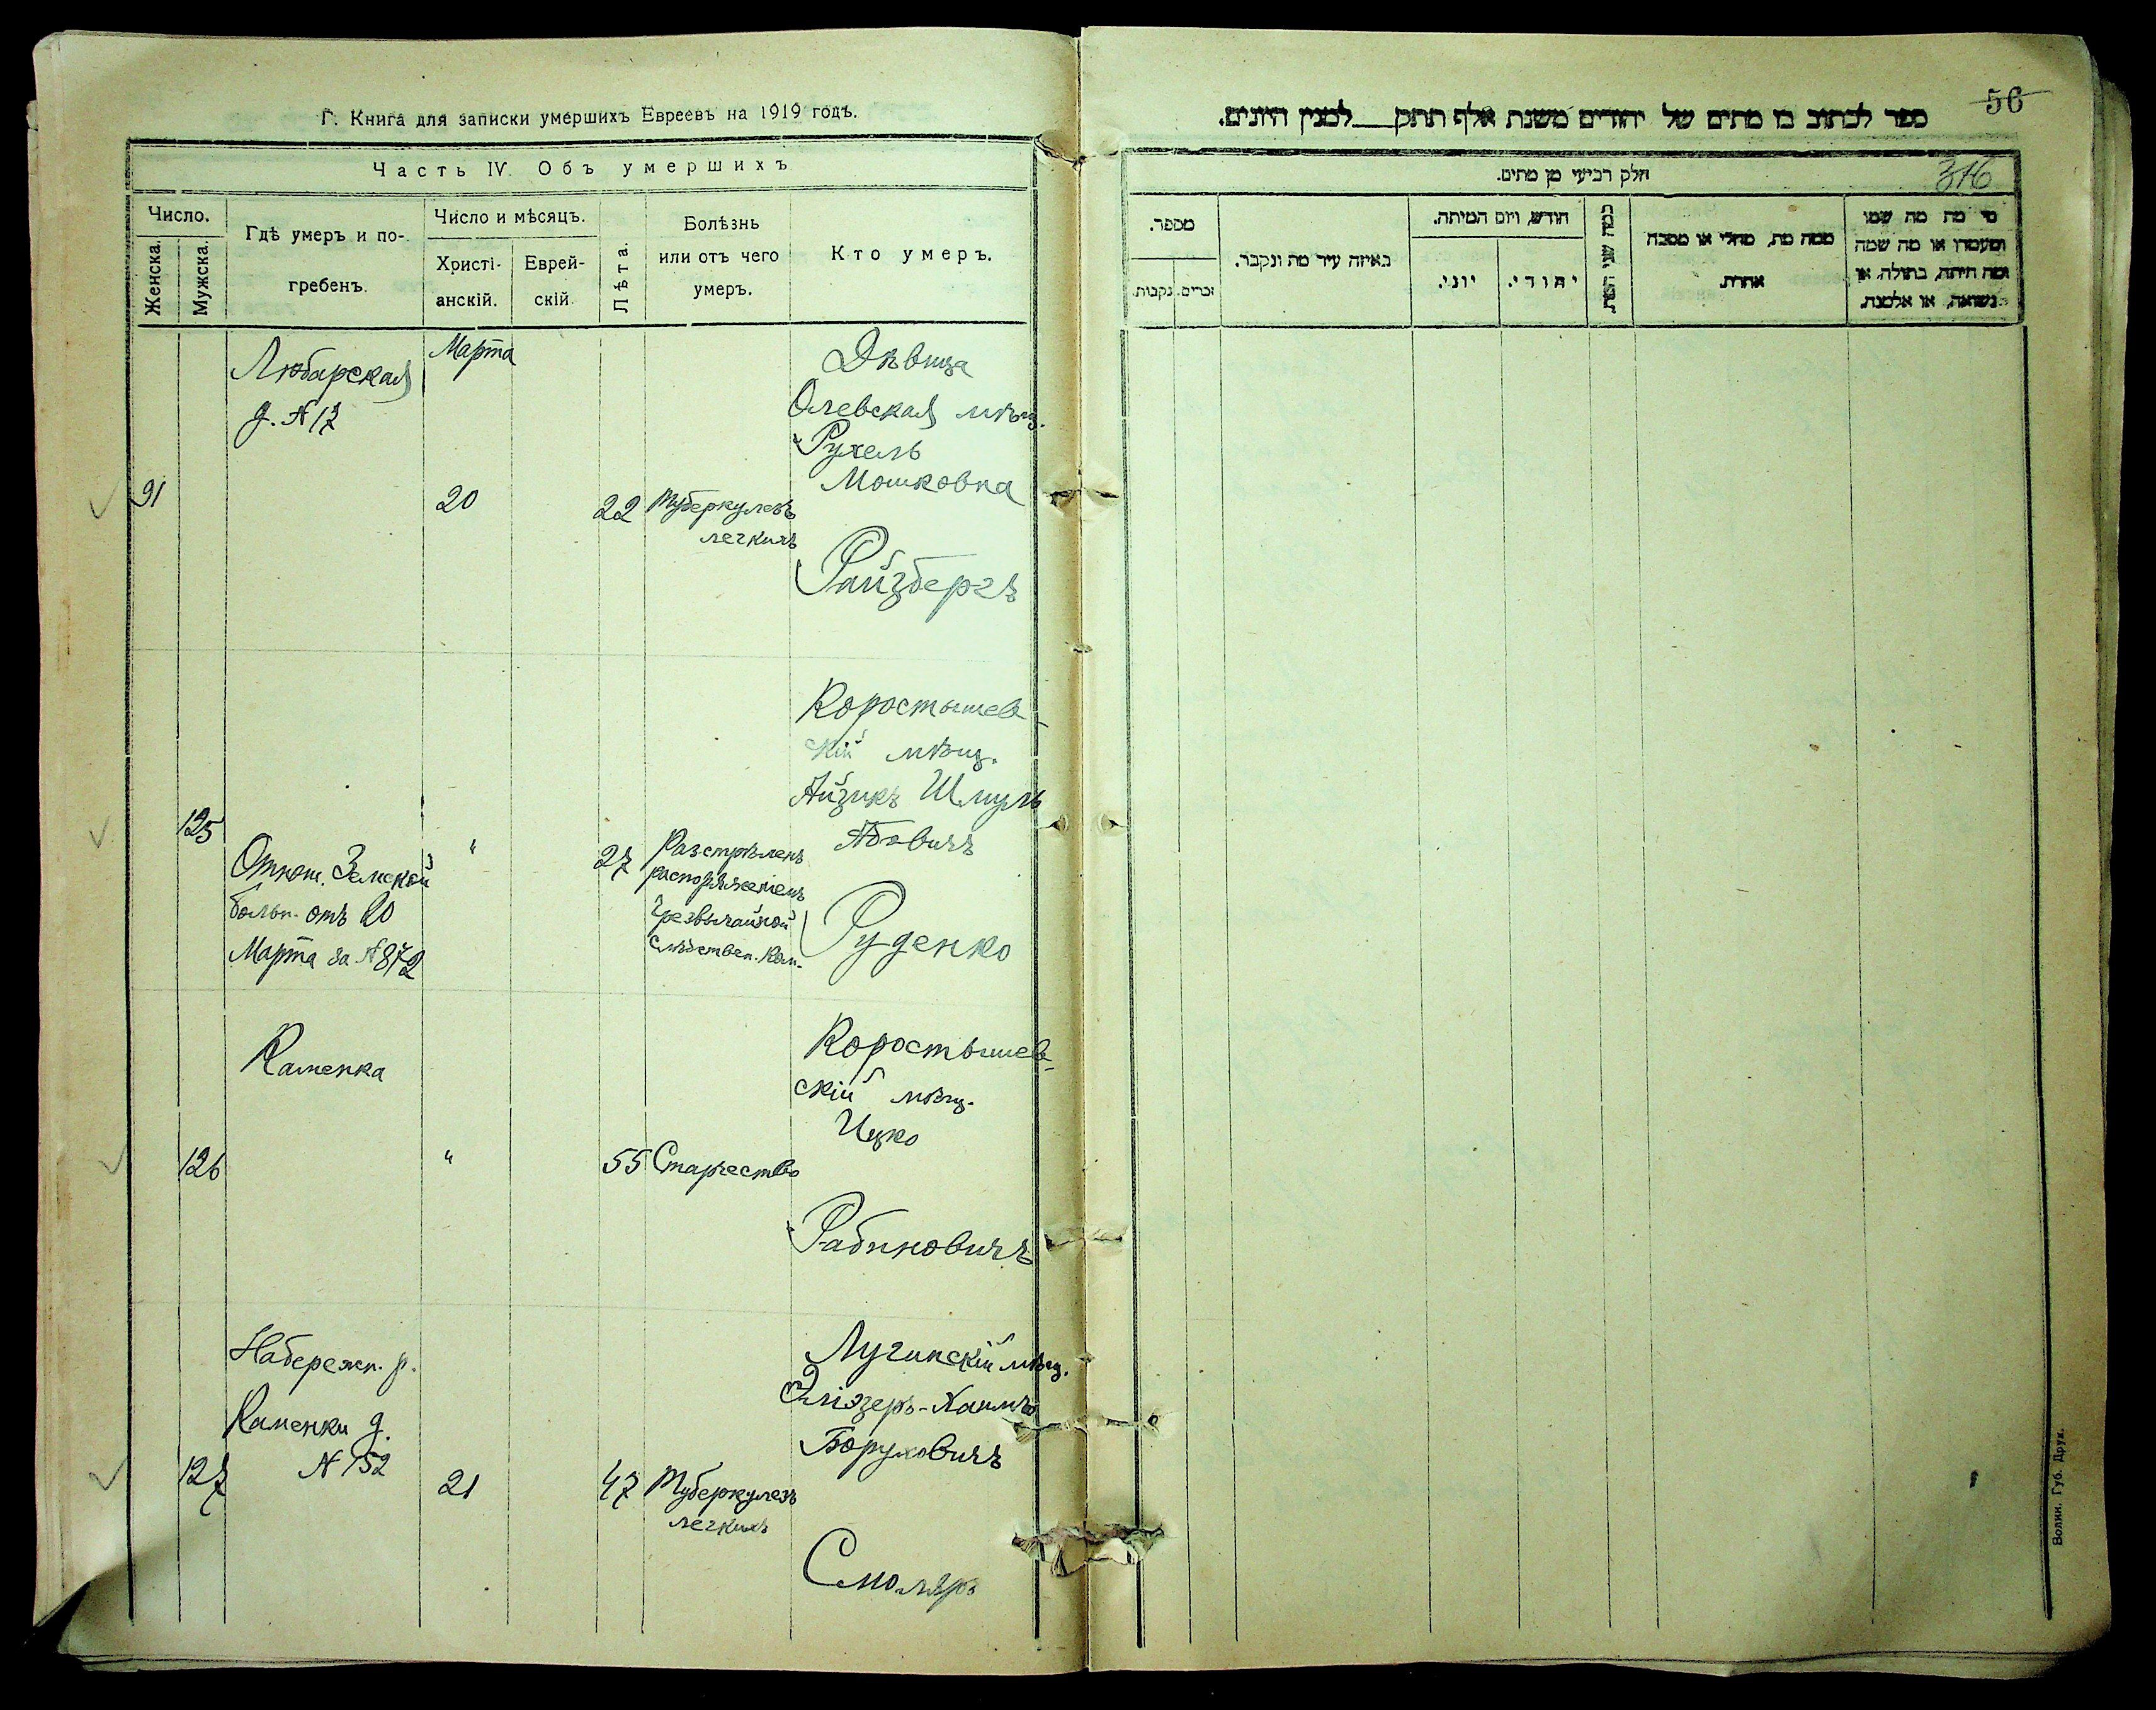 Г. Книга для записки умершихъ Евреевъ на 1919 годъ.
Часть IV. Объ умершихъ
Число.
Женска.
Мужска.
Гдѣ умеръ и по-
гребенъ.
Число и мѣсяцъ.
Христі-
анскій.
Еврей-
скій.
Лѣта.
Болѣзнь
или отъ чего
умеръ.
Кто умеръ.
Любарская
д. № 17
Марта
91
20
22
Туберкулезъ
легкихъ
Дѣвица
Олевская мѣщ.
Рухель
Мошковна
Райзбергъ
125
Отнош. Земской
больн. отъ 20
Марта за № 872
"
27
Разстрѣленъ
распоряженіемъ
Чрезвычайной
Слѣдствен. Ком.
Коростышев-
скій мѣщ.
Айзикъ Шмуль
Абовичъ
Руденко
Каменка
126
"
55
Старчество
Коростышев-
скій мѣщ.
Ицко
Рабиновичъ
Набережн. р.
Каменки д.
№ 152
127
21
47
Туберкулезъ
легкихъ
Лугинскій мѣщ.
Эліэзеръ-Хаимъ
Боруховичъ
Смоляръ
56
ספר לכתוב בו מתים של יהודים משנת אלף תתק__ למנין היונים.
316
חלק רביעי מן מתים.
מספר.
נקבות.
זכרים.
באיזה עיר מת ונקבר.
חודש, ויום המיתה.
יוני.
יהודי.
כמה שני המת.
ממה מת, מחלי או מסבה
אחרת.
מי מת מה שמו
ומעמדו או מה שמה
ומה היתה, בתולה, או
נשואה, או אלמנה.
Волин. Губ. Друк.